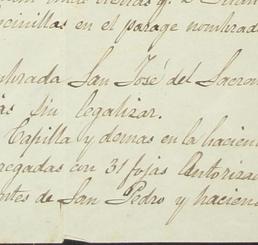 en el parage nombrad
brada San José del Sacrom
as sin legalizar.
Capilla y demas en la hacien
regadas con 31 fojas Autoriza
ntes de San Pedro y hacien